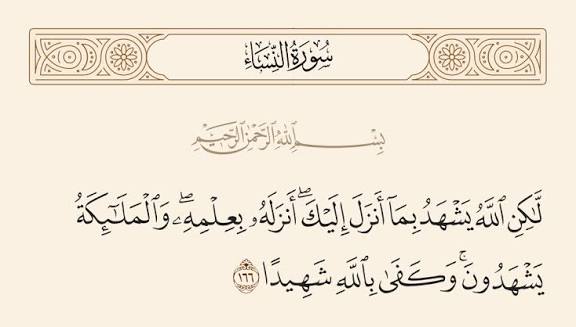 سُورَةُ النِّسَاءِ
بِسْمِ ٱللَّهِ ٱلرَّحْمَٰنِ ٱلرَّحِيمِ
لَّٰكِنِ ٱللَّهُ يَشْهَدُ بِمَآ أَنزَلَ إِلَيْكَ ۖ أَنزَلَهُۥ بِعِلْمِهِۦ ۖ وَٱلْمَلَٰٓئِكَةُ
يَشْهَدُونَ ۚ وَكَفَىٰ بِٱللَّهِ شَهِيدًا ١٦٦